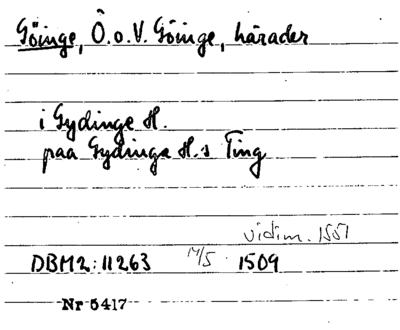 Göinge, Ö. o. V. Göinge, härader
i Gydinge H.
paa Gydinge H.s Ting
vidim. 1551
DBM2: 11263 14/5 1509
Nr 5417